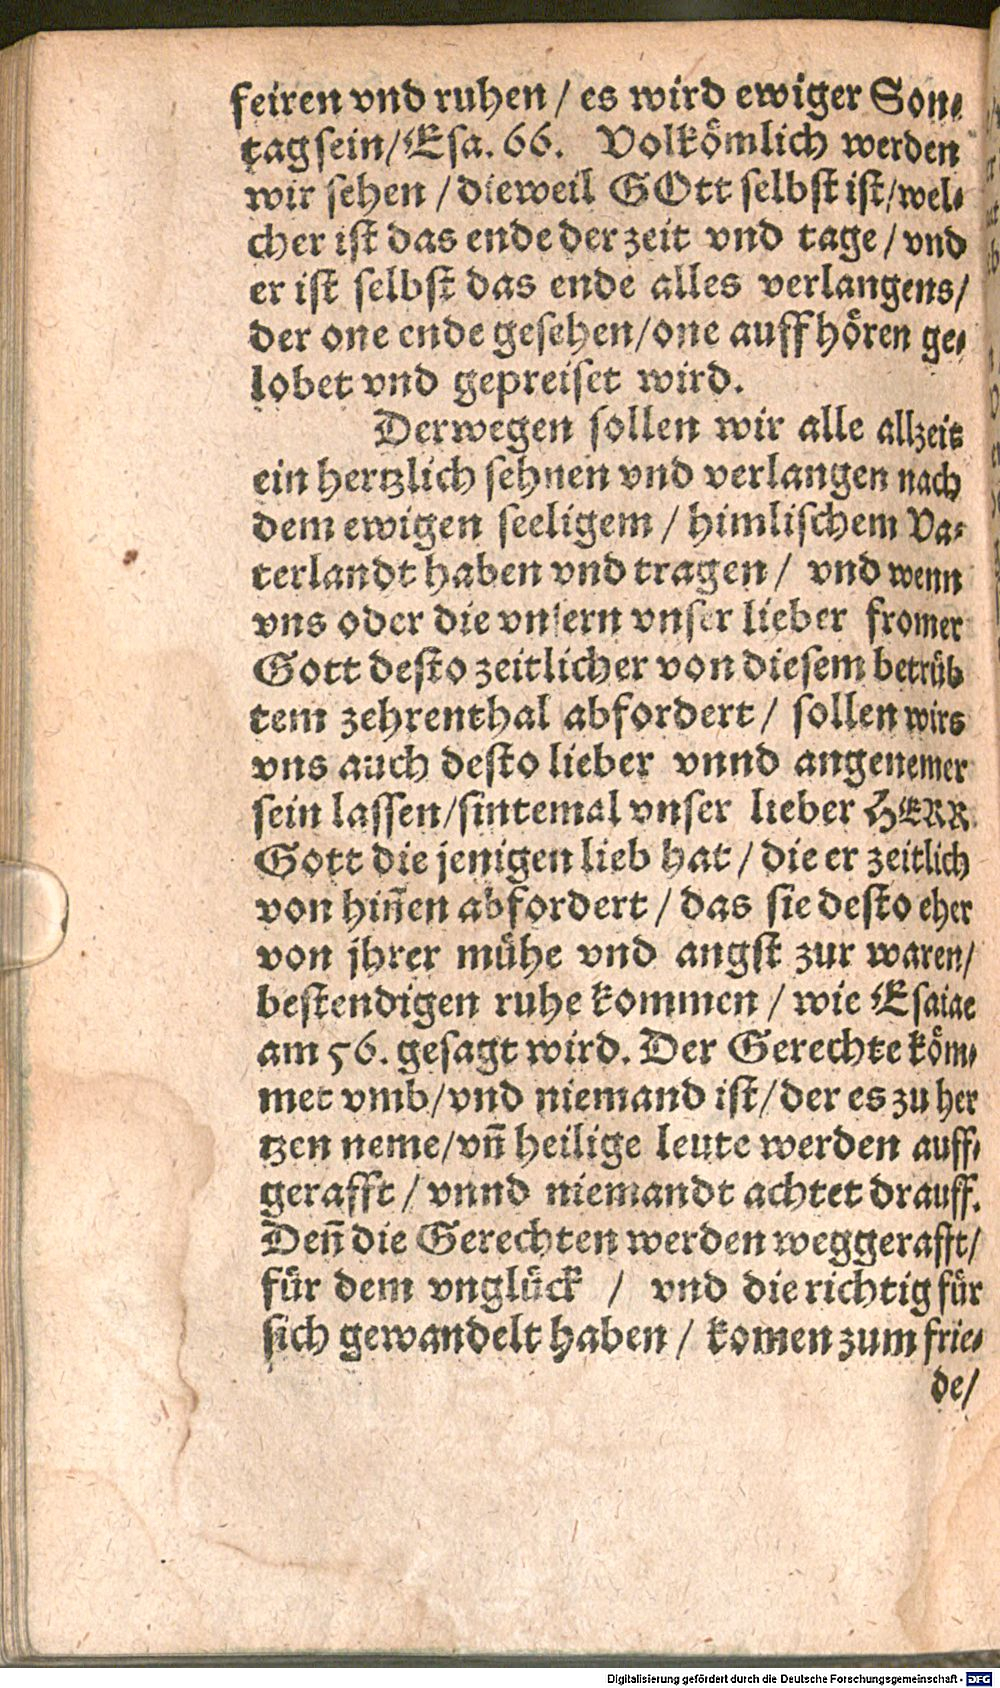 feiren vnd ruhen / es wird ewiger Son⸗
tag sein/ Esa. 66. Volkömlich werden
wir sehen / dieweil GOtt selbst ist/ wel⸗
cher ist das ende der zeit vnd tage / vnd
er ist selbst das ende alles verlangens/
der one ende gesehen/ one auffhören ge⸗
lobet vnd gepreiset wird.
Derwegen sollen wir alle allzeit
ein hertzlich sehnen vnd verlangen nach
dem ewigen seeligem / himlischem Va⸗
terlandt haben vnd tragen / vnd wenn
vns oder die vnsern vnser lieber fromer
Gott desto zeitlicher von diesem betrüb
tem zehrenthal abfordert / sollen wirs
vns auch desto lieber vnnd angenemer
sein lassen/ sintemal vnser lieber HERR
Gott die jenigen lieb hat / die er zeitlich
von hin̄en abfordert / das sie desto eher
von jhrer mühe vnd angst zur waren/
bestendigen ruhe kommen / wie Esaiae
am 56. gesagt wird. Der Gerechte köm⸗
met vmb/ vnd niemand ist/ der es zu her
tzen neme/ vn̄ heilige leute werden auff⸗
gerafft / vnnd niemandt achtet drauff.
Den̄ die Gerechten werden weggerafft/
für dem vnglück / vnd die richtig für
sich gewandelt haben / komen zum frie⸗
de/
Digitalisierung gefördert durch die Deutsche Forschungsgemeinschaft - DFG